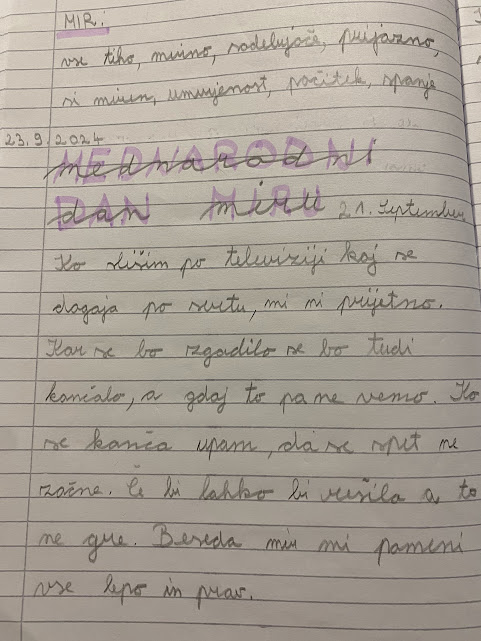 MIR:
vse tiho, mirno, sodelujoče, prijazno,
si miren, umirjenost, počitek, spanje
23.9.2024
MEDNARODNI
DAN MIRU 21. September
Ko slišim po televiziji kaj se
dogaja po svetu, mi ni prijetno.
Kar se bo zgodilo se bo tudi
končalo, a gdaj to pa ne vemo. Ko
se konča upam, da se spet ne
začne. Če bi lahko bi rešila a to
ne gre. Beseda mir mi pomeni
vse lepo in prav.